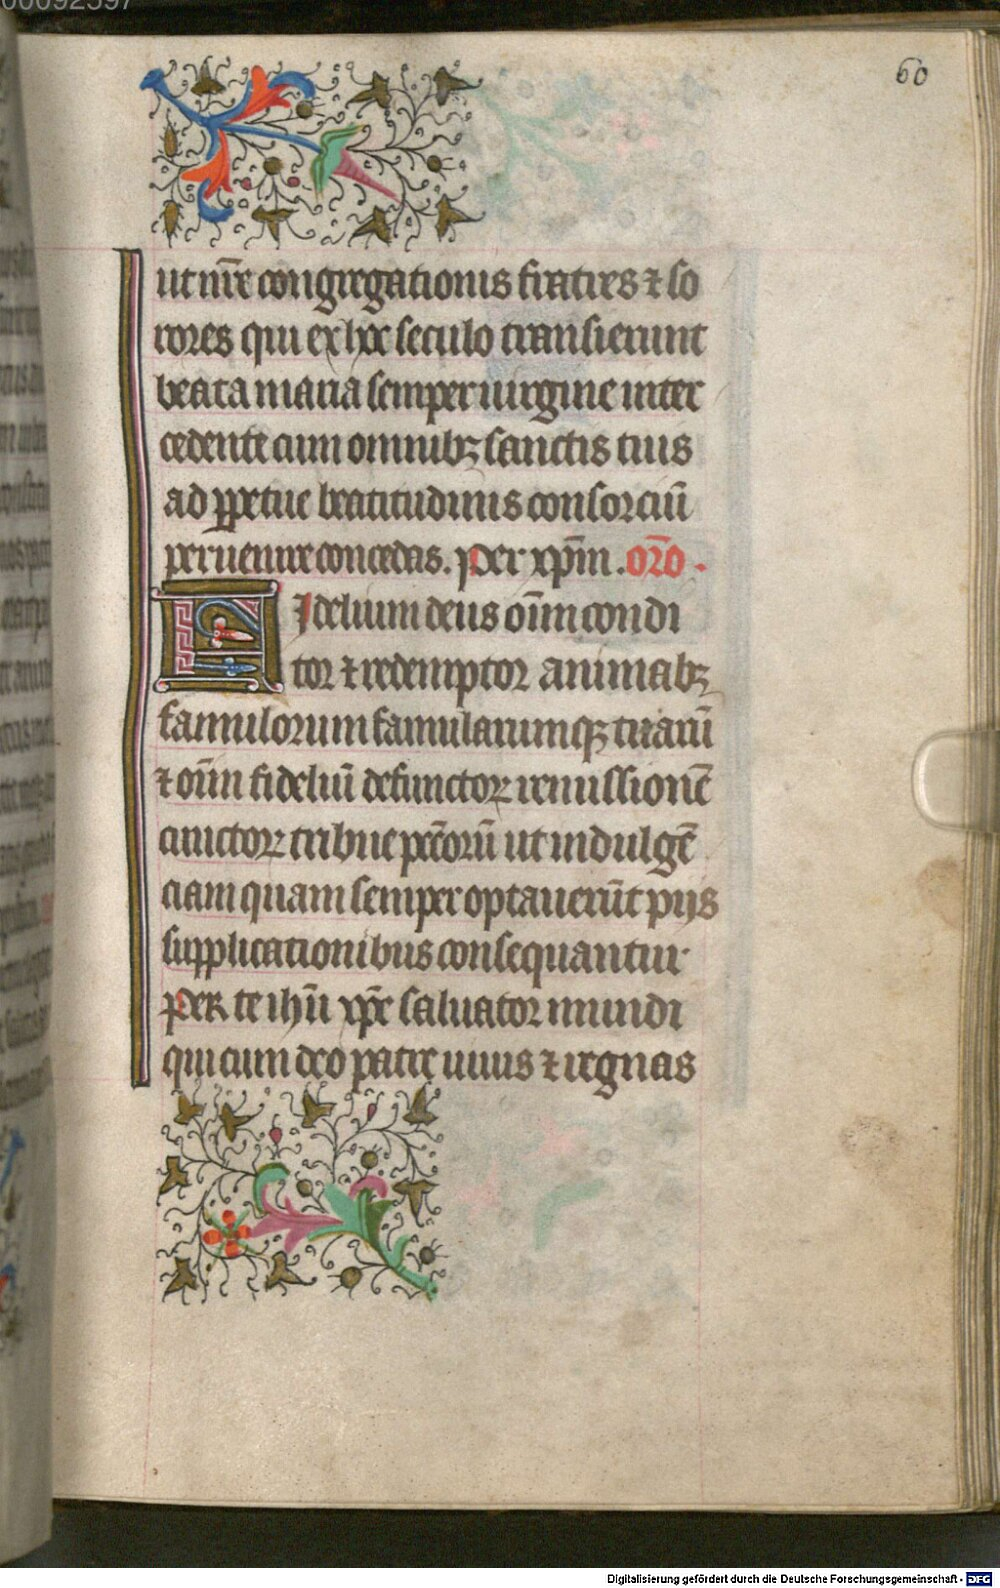 00092597
60
ut nr̄e congregationis fratres ⁊ so
rores qui ex hoc seculo transierunt
beata maria semper uirgine inter
cedente cum omnibꝫ sanctis tuis
ad ꝑpetue beatitudinis consorciū
peruenire concedas. Per xp̄m. oro̅.
Fidelium deus om̄n condi
tor ⁊ redemptor animabꝫ
famulorum famularumqꝫ tuarū
⁊ om̄n fideliū defunctoꝝ remissionē
cunctoꝝ tribue pccōrū ut indulgē
ciam quam semper optauerūt pijs
supplicationibus consequantur.
Per te ihū xp̄e saluator mundi
qui cum deo patre uiuis ⁊ regnas
Digitalisierung gefördert durch die Deutsche Forschungsgemeinschaft - DFG